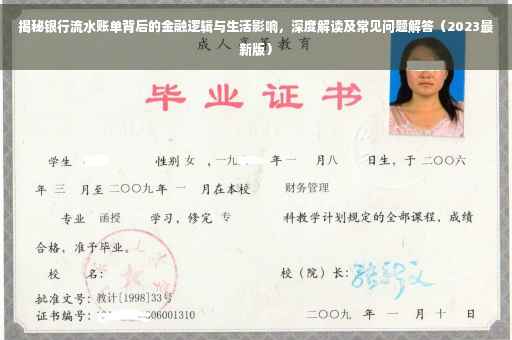 揭秘银行流水账单背后的金融逻辑与生活影响，深度解读及常见问题解答（2023最
新版）
成人高等教育
毕业证书
学生 性别 女 ，一九 年 一 月 八 日生，于 二〇〇六
年 三 月至 二〇〇九 年 一 月在本校 财务管理
专业 函授 学习，修完 专 科教学计划规定的全部课程，成绩
合格，准予毕业。
校 名： 校（院）长：
批准文号：教计[1998]33号
证书编号： 06001310 二〇〇九 年 一 月 十 日